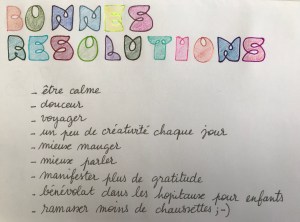 BONNES
RESOLUTIONS
- être calme
- douceur
- voyager
- un peu de créativité chaque jour
- mieux manger
- mieux parler
- manifester plus de gratitude
- bénévolat dans les hôpitaux pour enfants
- ramasser moins de chaussettes ;-)